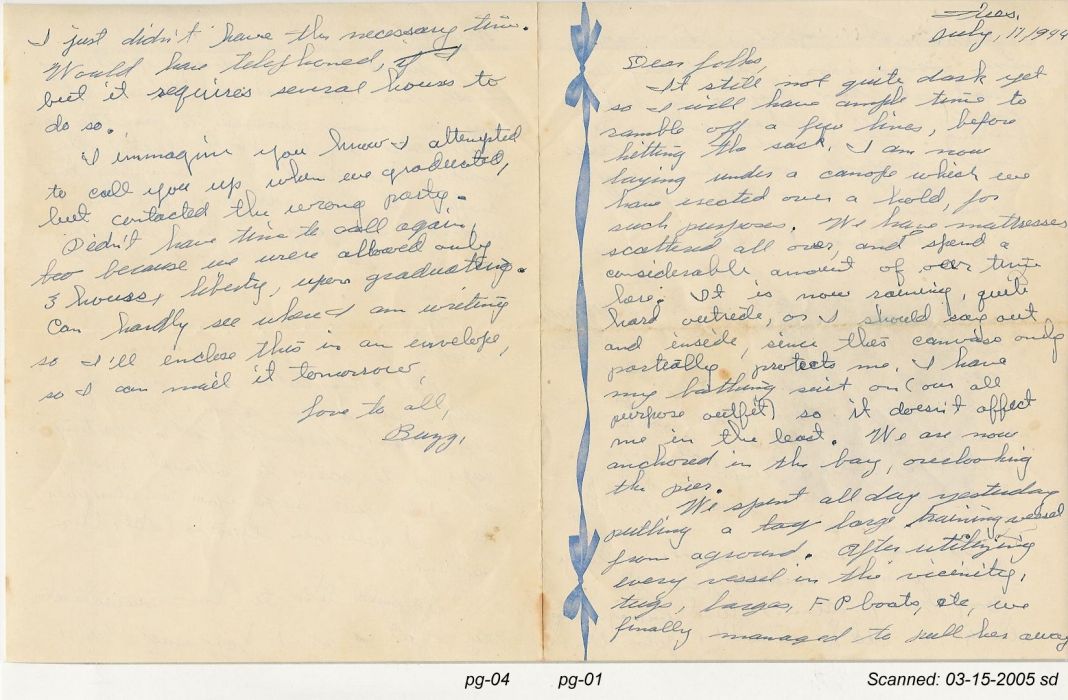 I just didn't have the necessary time.
Would have telephoned, if I
but it requires several hours to
do so.
I immagine you know I attempted
to call you up, when we graduated,
but contacted the wrong party.
Didn't have time to call again,
too because we were allowed only
3 hours, liberty, upon graduating.
Can hardly see where I am writing
so I'll enclose this in an envelope,
so I can mail it tomorrow,
Love to all,
Buzz.
pg-04
Tues.
July, 17, 1944
Dear folks,
It still not quite dark yet
so I will have ample time to
ramble off a few lines, before
hitting the sack. I am now
laying under a canope which we
have erected over a hold, for
such purposes. We have mattresses
scattered all over, and spend a
considerable amount of our time
here. It is now raining, quite
hard outside, or I should say out
and inside, since this canvas only
partially protects me. I have
my bathing suit on (our all
purpose outfit) so it doesn't affect
me in the least. We are now
anchored in the bay, overlooking
the pier.
We spent all day yesterday
pulling a large training vessel
from aground. After utilizing
every vessel in the vicinity,
tugs, barges, F P boats, etc, we
finally managed to pull her away
pg-01
Scanned: 03-15-2005 sd